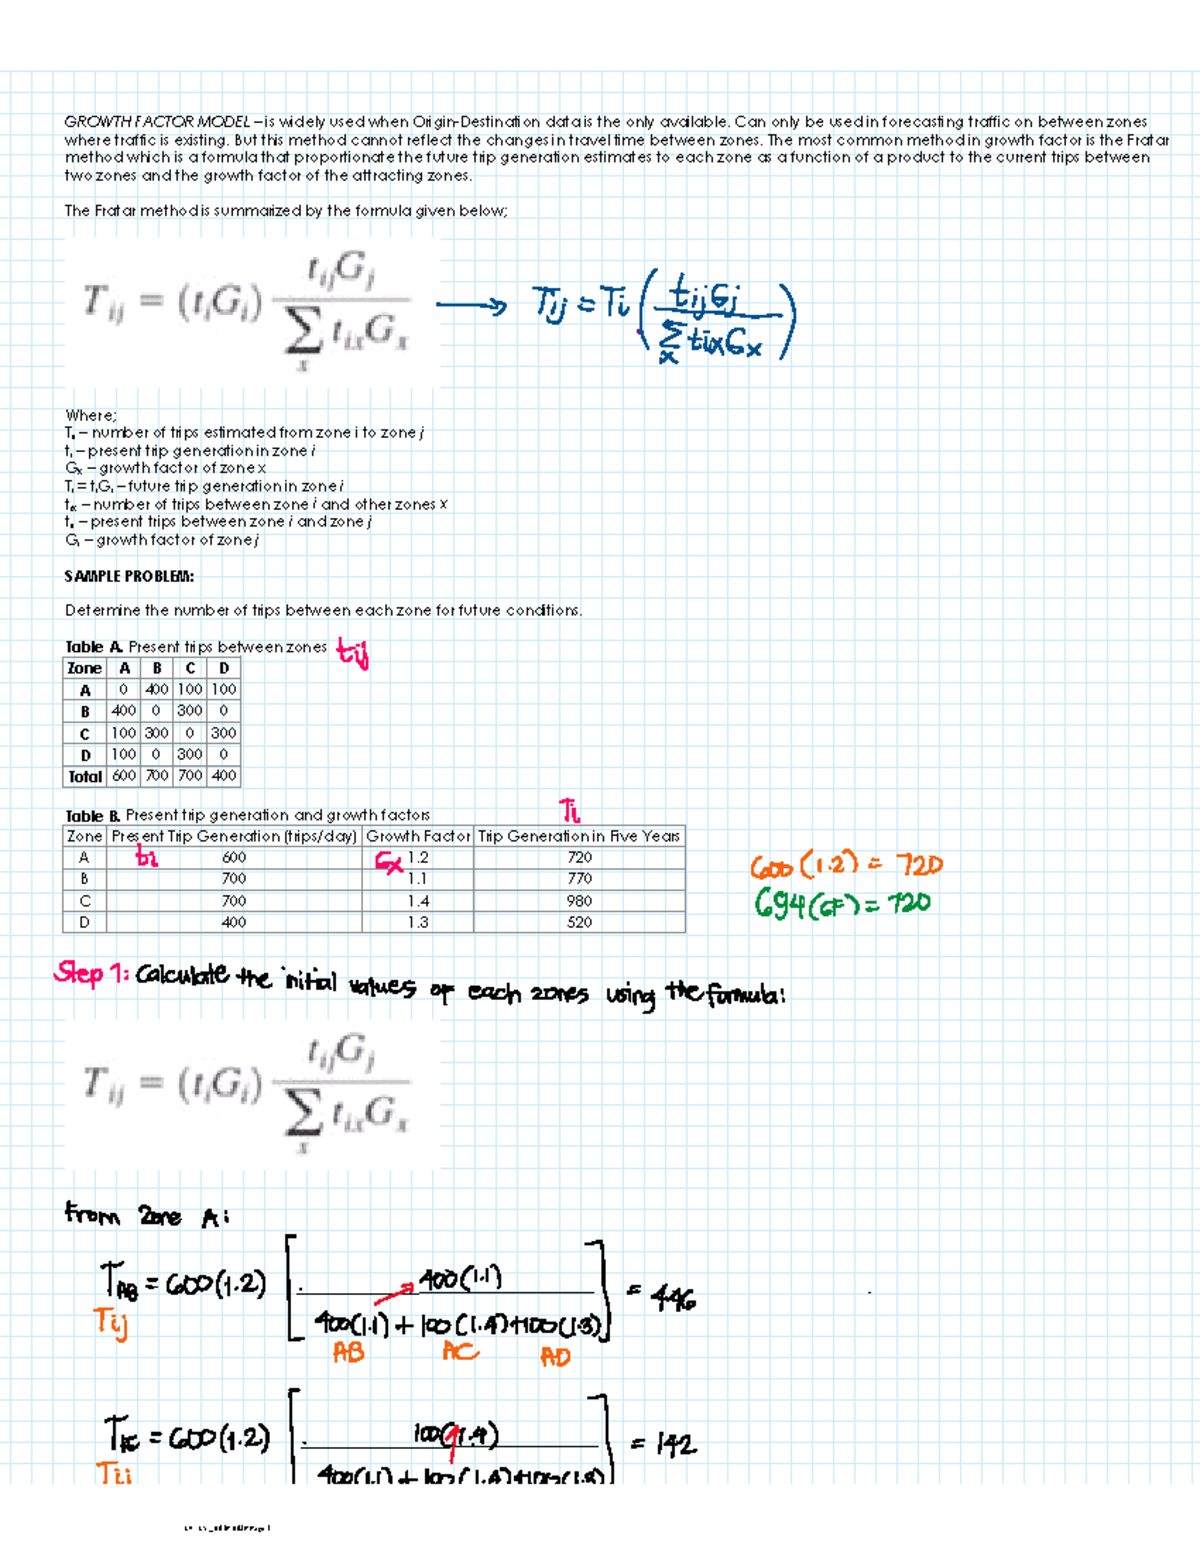 GROWTH FACTOR MODEL – is widely used when Origin-Destination data is the only available. Can only be used in forecasting traffic on between zones
where traffic is existing. But this method cannot reflect the changes in travel time between zones. The most common method in growth factor is the Fratar
method which is a formula that proportionate the future trip generation estimates to each zone as a function of a product to the current trips between
two zones and the growth factor of the attracting zones.
The Fratar method is summarized by the formula given below;
T_ij = (t_i G_i) t_ij G_j / Σ_x t_ix G_x → T_ij = T_i ( t_ij G_j / Σ_x t_ix G_x )
Where;
T – number of trips estimated from zone i to zone j
t – present trip generation in zone i
Gx – growth factor of zone x
T = t G – future trip generation in zone i
t – number of trips between zone i and other zones x
t – present trips between zone i and zone j
G – growth factor of zone j
SAMPLE PROBLEM:
Determine the number of trips between each zone for future conditions.
Table A. Present trips between zones tij
Zone A B C D
A 0 400 100 100
B 400 0 300 0
C 100 300 0 300
D 100 0 300 0
Total 600 700 700 400
Table B. Present trip generation and growth factors Ti
Zone Present Trip Generation (trips/day) Growth Factor Trip Generation in Five Years
A ti 600 Gx 1.2 720 600(1.2) = 720
B 700 1.1 770
C 700 1.4 980 694(GF) = 720
D 400 1.3 520
Step 1: Calculate the initial values of each zones using the formula:
T_ij = (t_i G_i) t_ij G_j / Σ_x t_ix G_x
From Zone A:
T_AB = 600(1.2) [ 400(1.1) / 400(1.1) + 100(1.4) + 100(1.3) ] = 446
Tij AB AC AD
T_AC = 600(1.2) [ 100(1.4) / 400(1.1) + 100(1.4) + 100(1.3) ] = 142
Tij